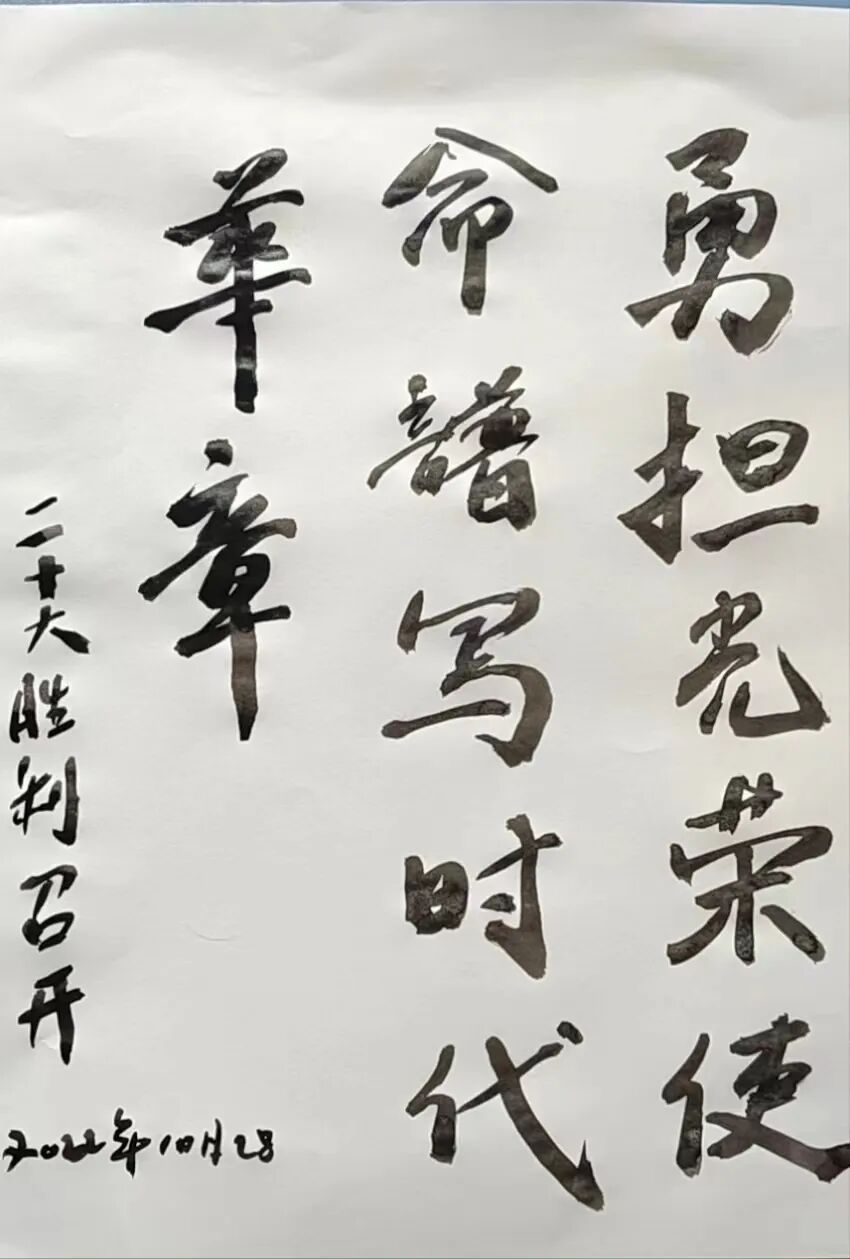 勇担光荣使
命谱写时代
華章
二十大胜利召开
2022年10月28